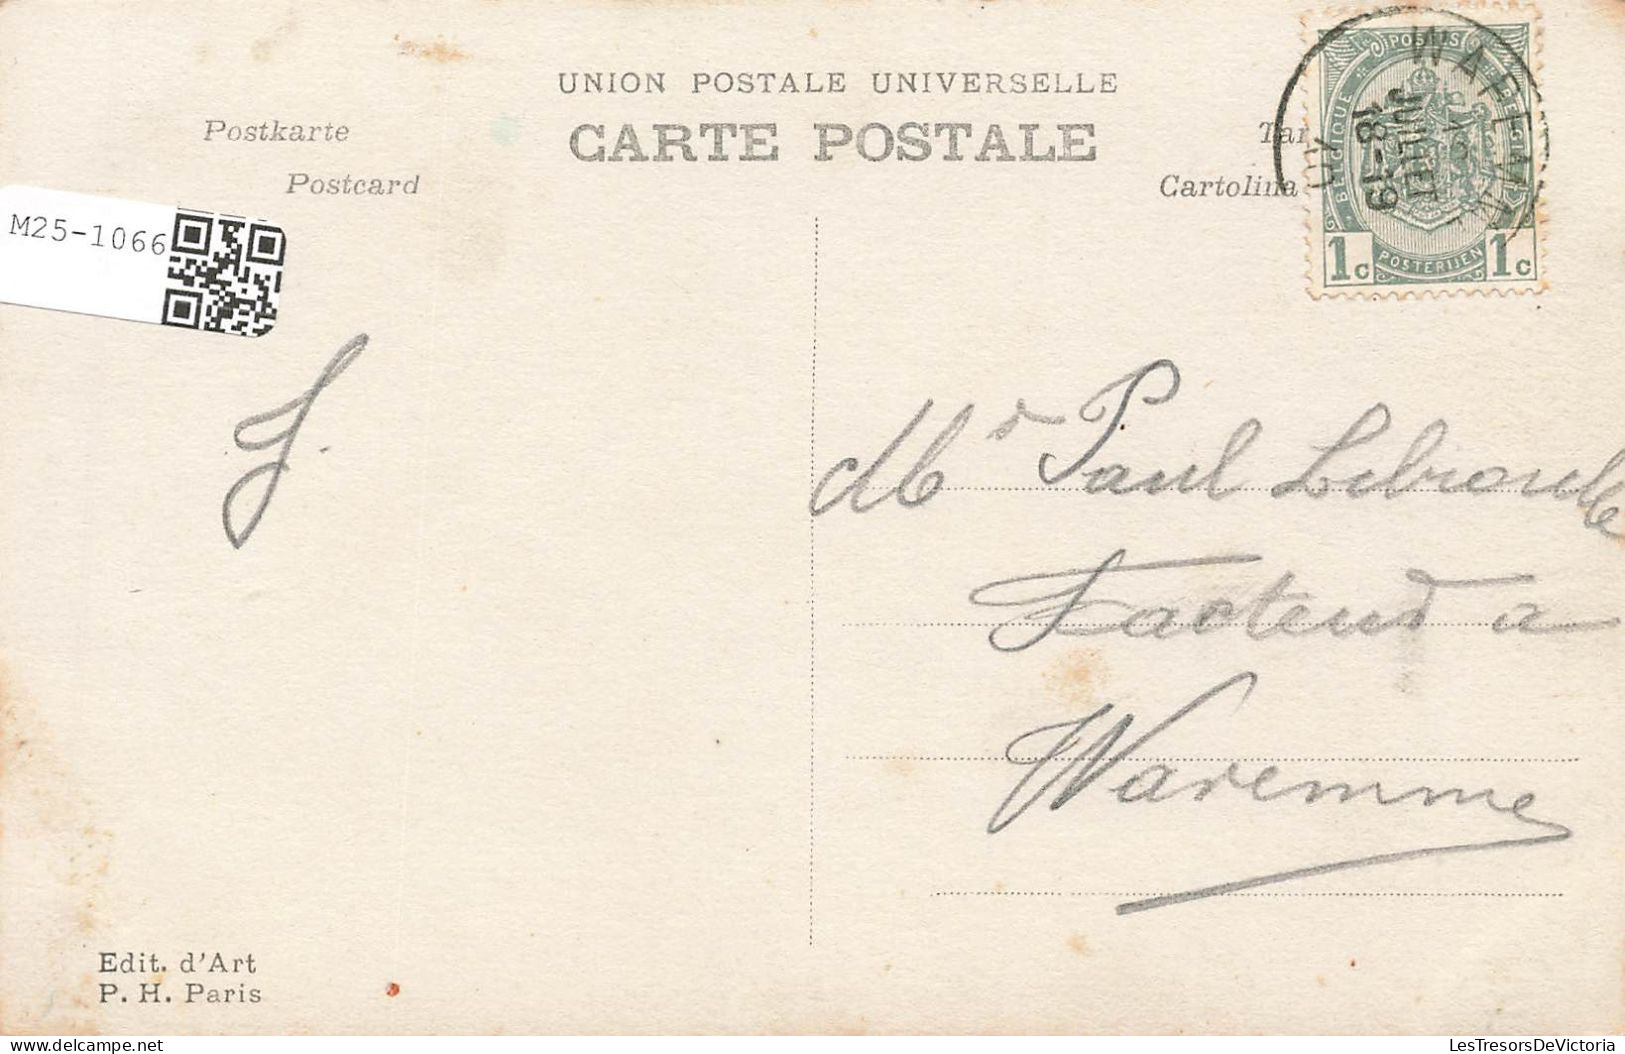 UNION POSTALE UNIVERSELLE
CARTE POSTALE
Postkarte
Postcard
Cartolina
M25-1066
POSTES
BELGIQUE
1c POSTERIJEN 1c
WAREMME
18-19
JUILLET
J.
Mr Paul
Facteur a
Waremme
Edit. d'Art
P. H. Paris
LesTresorsDeVictoria
delcampe.net